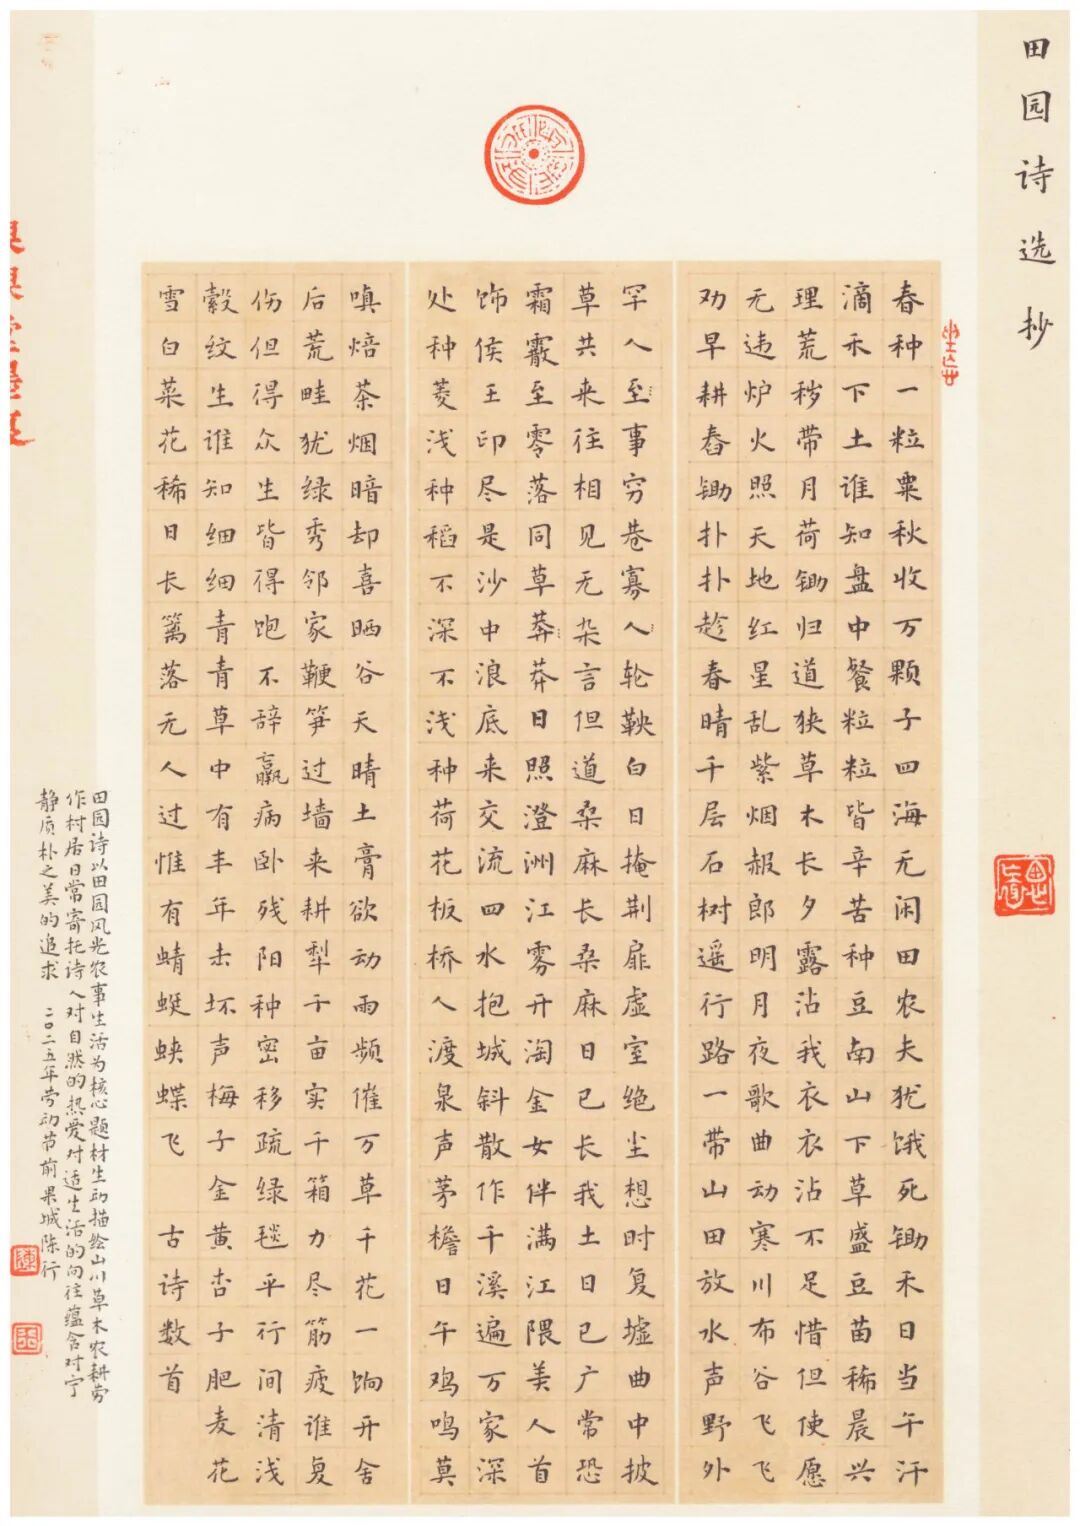 田园诗选抄
春种一粒粟秋收万颗子四海无闲田农夫犹饿死锄禾日当午汗
滴禾下土谁知盘中餐粒粒皆辛苦种豆南山下草盛豆苗稀晨兴
理荒秽带月荷锄归道狭草木长夕露沾我衣衣沾不足惜但使愿
无违炉火照天地红星乱紫烟赧郎明月夜歌曲动寒川布谷飞飞
劝早耕舂锄扑扑趁春晴千层石树遥行路一带山田放水声野外
罕人至事穷巷寡人轮鞅白日掩荆扉虚室绝尘想时复墟曲中披
草共来往相见无杂言但道桑麻长桑麻日已长我土日已广常恐
霜霰至零落同草莽莽日照澄洲江雾开淘金女伴满江隈美人首
饰侯王印尽是沙中浪底来交流四水抱城斜散作千溪遍万家深
处种菱浅种稻不深不浅种荷花板桥人渡泉声茅檐日午鸡鸣莫
嗔焙茶烟暗却喜晒谷天晴土膏欲动雨频催万草千花一饷开舍
后荒畦犹绿秀邻家鞭笋过墙来耕犁千亩实千箱力尽筋疲谁复
伤但得众生皆得饱不辞羸病卧残阳种密移疏绿毯平行间清浅
縠纹生谁知细细青青草中有丰年击坏声梅子金黄杏子肥麦花
雪白菜花稀日长篱落无人过惟有蜻蜓蛱蝶飞 古诗数首
田园诗以田园风光农事生活为核心题材生动描绘山川草木农耕劳
作村居日常寄托诗人对自然的热爱对适生活的向往蕴含对宁
静质朴之美的追求 二〇二五年劳动节前果城陈行